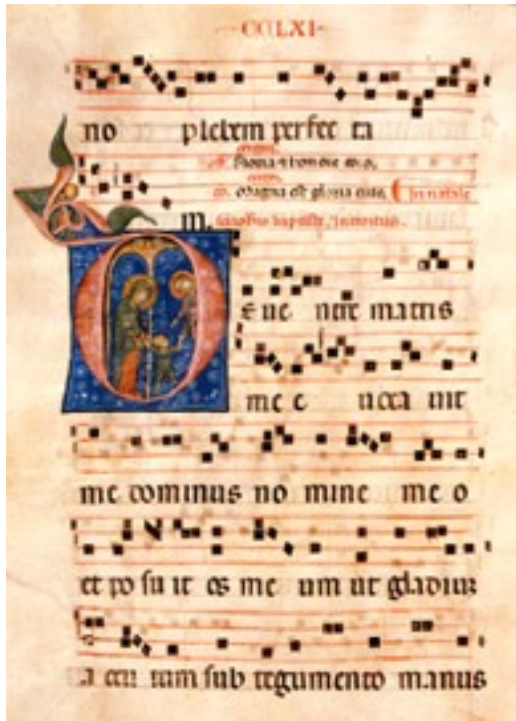 CCLXI
no plebem perfec ta
Gloria et honore
Magna est gloria eius. In natale
m. baptiste, Introitus.
De ue ntre matris
me e uoca uit
me dominus no mine me o
et po su it os me um ut gladium
a cu tum sub tegumento manus